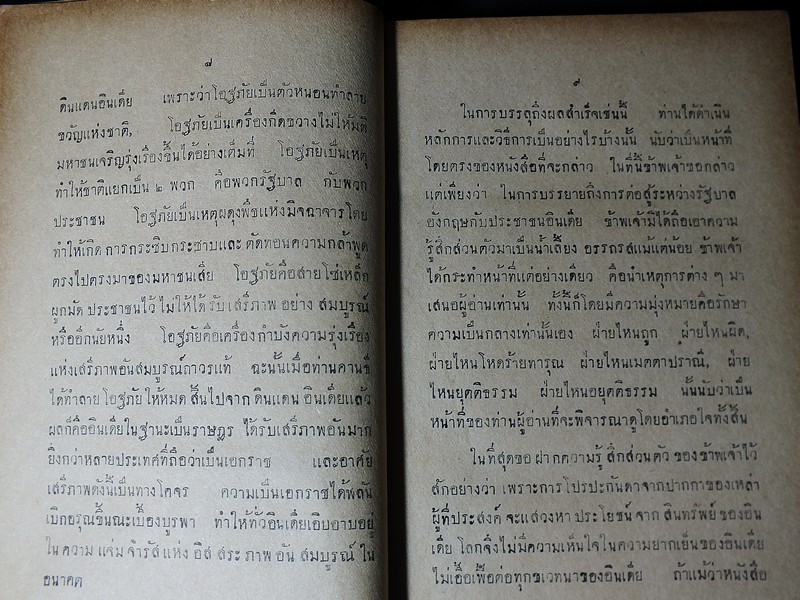 ๘
ดินแดนอินเดีย เพราะว่าโอฐภัยเป็นตัวหนอนทำลาย
ขวัญแห่งชาติ, โอฐภัยเป็นเครื่องกีดขวางไม่ให้มติ
มหาชนเจริญรุ่งเรืองขึ้นได้อย่างเต็มที่ โอฐภัยเป็นเหตุ
ทำให้ชาติแยกเป็น ๒ พวก คือพวกรัฐบาล กับพวก
ประชาชน โอฐภัยเป็นเหตุผดุงพืชแห่งมิจฉาจารโดย
ทำให้เกิด การกระซิบกระซาบและ ตัดทอนความกล้าพูด
ตรงไปตรงมาของมหาชนเสีย โอฐภัยคือสายโซ่เหล็ก
ผูกมัด ประชาชนไว้ ไม่ให้ได้ รับ เสรีภาพ อย่าง สมบูรณ์
หรืออีกนัยหนึ่ง โอฐภัยคือเครื่องกำบังความรุ่งเรือง
แห่งเสรีภาพอันสมบูรณ์ถาวรแท้ ฉะนั้นเมื่อท่านคานธี
ได้ทำลาย โอฐภัย ให้หมด สิ้นไปจาก ดินแดน อินเดียแล้ว
ผลก็คืออินเดียในฐานะเป็นราษฎร ได้รับเสรีภาพอันมาก
ยิ่งกว่าหลายประเทศที่ถือว่าเป็นเอกราช และอาศัย
เสรีภาพดังนี้เป็นทางโคจร ความเป็นเอกราชได้พลัน
เบิกอรุณขึ้นณะเบื้องบูรพา ทำให้ทั่วอินเดียเอิบอาบอยู่
ใน ความ แจ่ม จำรัส แห่ง อิส สระ ภาพ อัน สมบูรณ์ ใน
อนาคต
๙
ในการบรรลุถึงผลสำเร็จเช่นนี้ ท่านได้ดำเนิน
หลักการและวิธีการเป็นอย่างไรบ้างนั้น นับว่าเป็นหน้าที่
โดยตรงของหนังสือที่จะกล่าว ในที่นี้ข้าพเจ้าขอกล่าว
แต่เพียงว่า ในการบรรยายถึงการต่อสู้ระหว่างรัฐบาล
อังกฤษกับประชาชนอินเดีย ข้าพเจ้ามิได้ถือเอาความ
รู้สึกส่วนตัวมาเป็นน้ำเลี้ยง อรรถรสแม้แต่น้อย ข้าพเจ้า
ได้กระทำหน้าที่แต่อย่างเดียว คือนำเหตุการต่าง ๆ มา
เสนอผู้อ่านเท่านั้น ทั้งนี้ก็โดยมีความมุ่งหมายคือรักษา
ความเป็นกลางเท่านั้นเอง ฝ่ายไหนถูก ฝ่ายไหนผิด,
ฝ่ายไหนโหดร้ายทารุณ ฝ่ายไหนเมตตาปราณี, ฝ่าย
ไหนยุตติธรรม ฝ่ายไหนอยุตติธรรม นั้นนับว่าเป็น
หน้าที่ของท่านผู้อ่านที่จะพิจารณาดูโดยอำเภอใจทั้งสิ้น
ในที่สุดขอ ฝากความรู้ สึกส่วนตัว ของข้าพเจ้าไว้
สักอย่างว่า เพราะการโปรปะกันดาจากปากกาของเหล่า
ผู้ที่ประสงค์ จะแสวงหา ประโยชน์จาก สินทรัพย์ ของอิน
เดีย โลกจึงไม่มีความเห็นใจในความยากเย็นของอินเดีย
ไม่เอื้อเฟื้อต่อทุกขเวทนาของอินเดีย ถ้าแม้ว่าหนังสือ